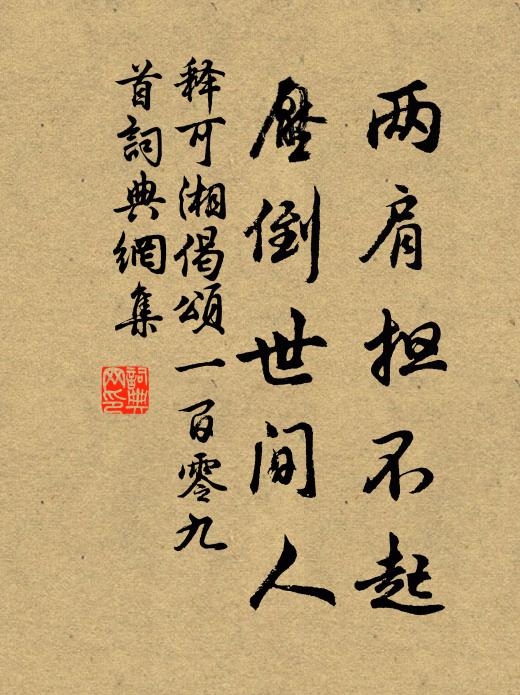 两肩担不起
压倒世间人
释可湘偈颂一百零九
首詞典網集
詞典
网印